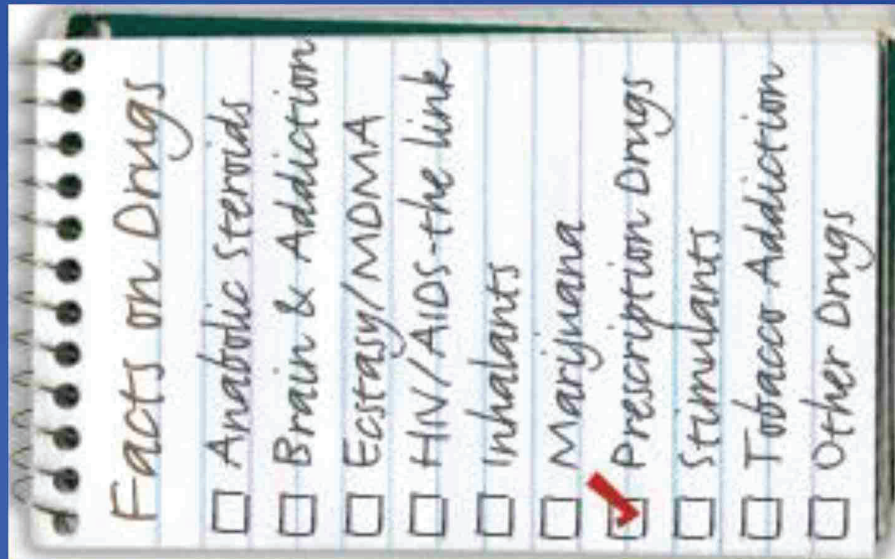 Facts on Drugs
Anabolic Steroids
Brain & Addiction
Ecstasy/MDMA
HIV/AIDS-the link
Inhalants
Marijuana
Prescription Drugs
Stimulants
Tobacco Addiction
Other Drugs